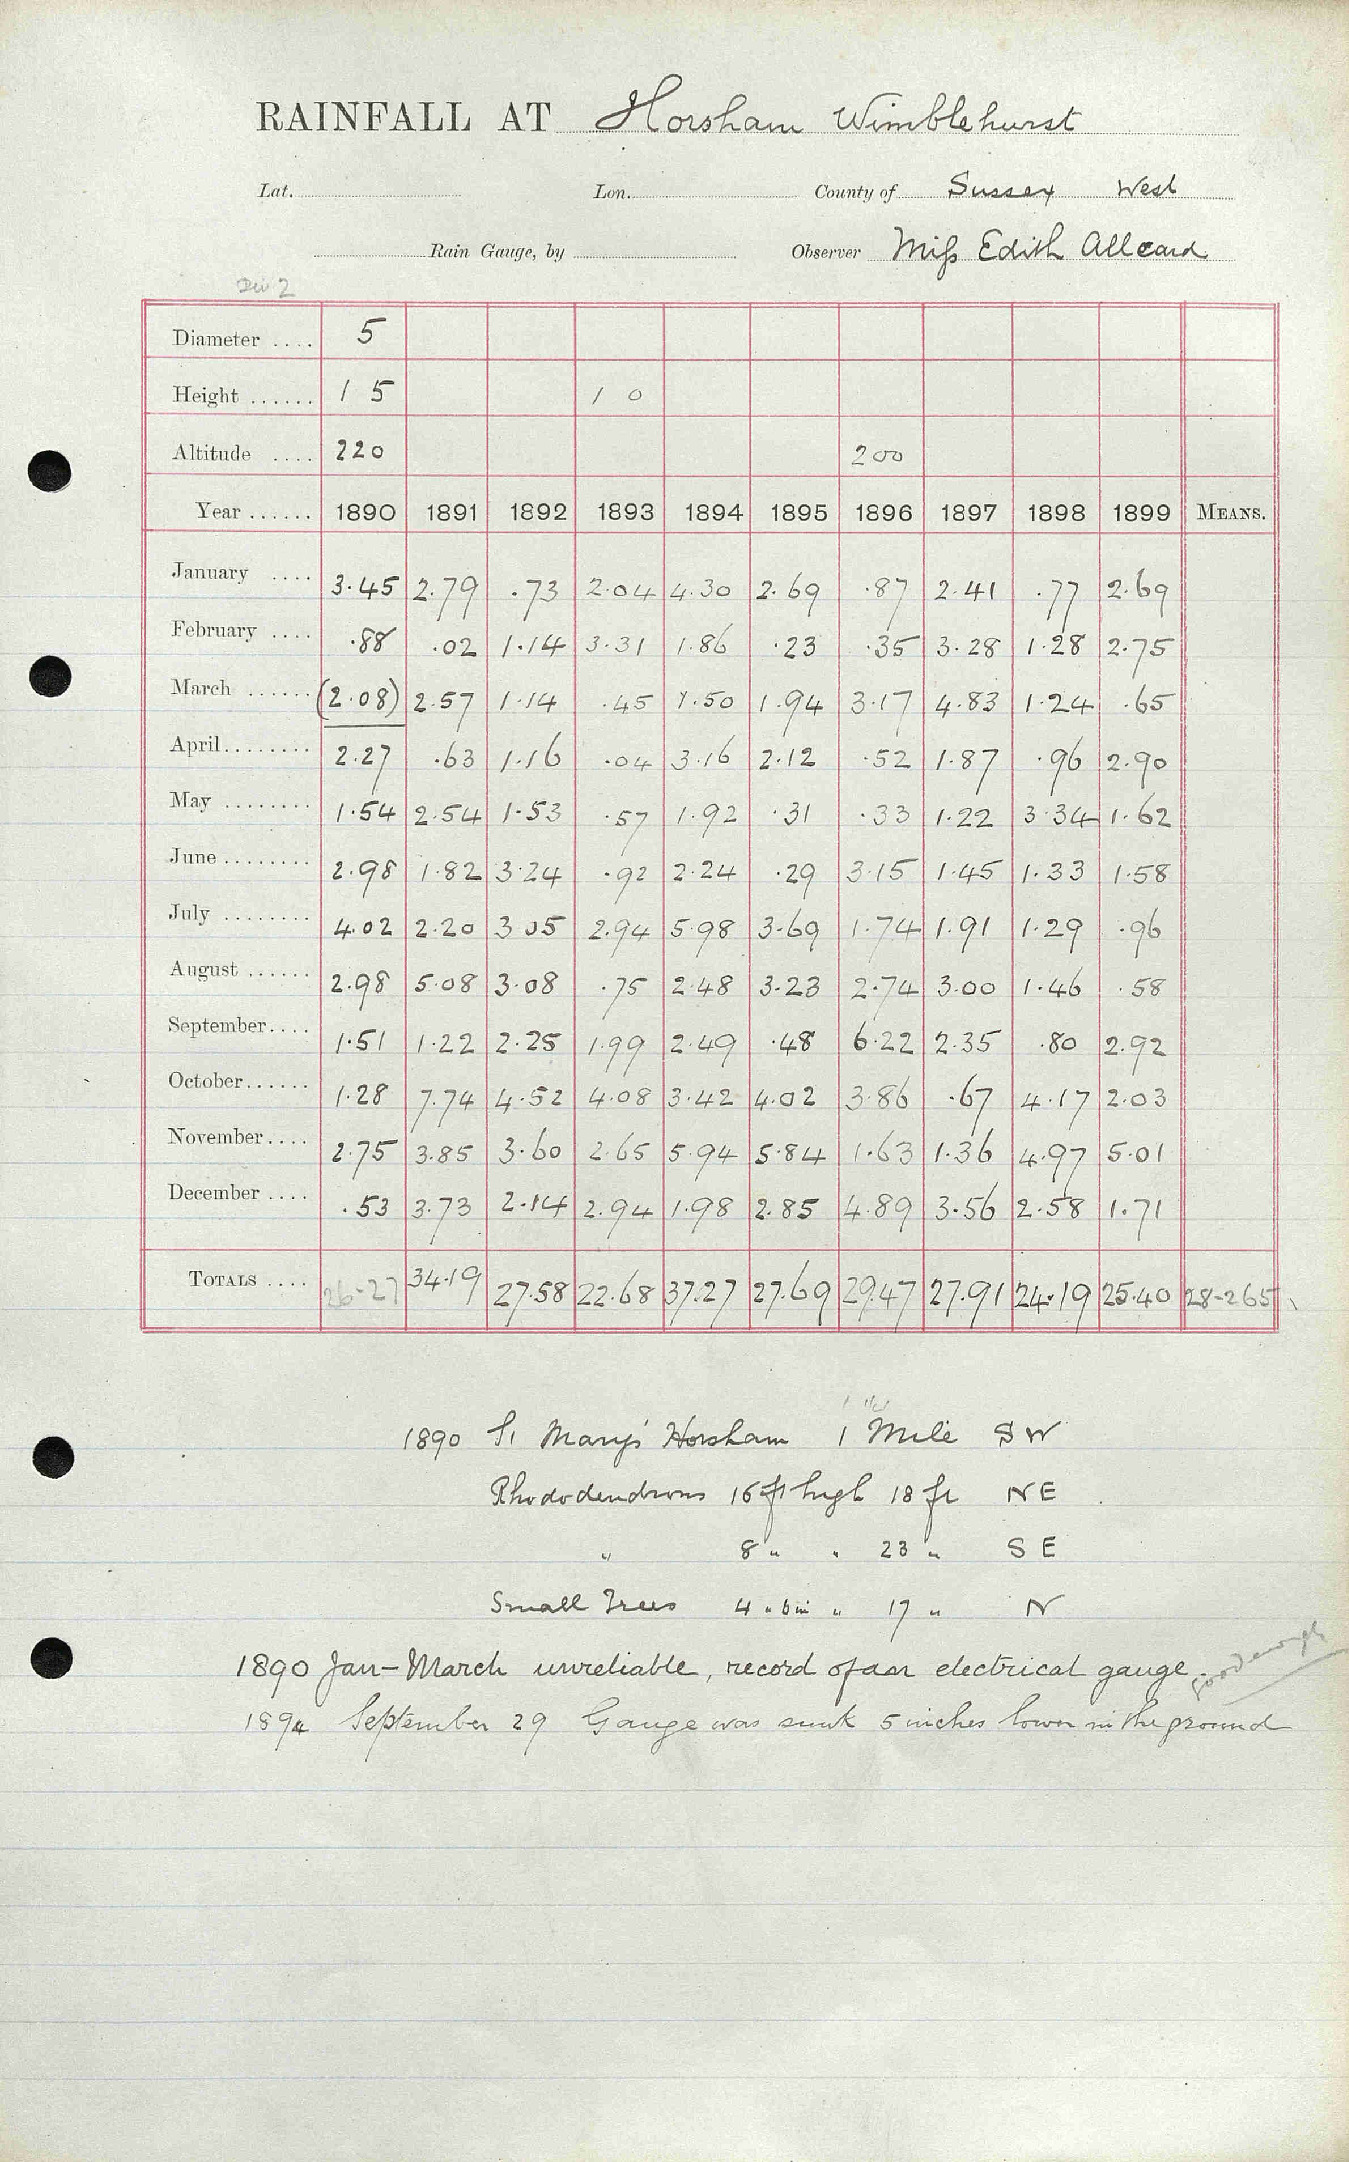 RAINFALL AT Horsham Wimblehurst
Lat. Lon. County of Sussex West
Rain Gauge, by Observer Miss Edith Allcard
Div 2
Diameter .... 5
Height ...... 1 5 1 0
Altitude .... 220 200
Year ...... 1890 1891 1892 1893 1894 1895 1896 1897 1898 1899 MEANS.
January .... 3.45 2.79 .73 2.04 4.30 2.69 .87 2.41 .77 2.69
February .... .88 .02 1.14 3.31 1.86 .23 .35 3.28 1.28 2.75
March ...... (2.08) 2.57 1.14 .45 1.50 1.94 3.17 4.83 1.24 .65
April ........ 2.27 .63 1.16 .04 3.16 2.12 .52 1.87 .96 2.90
May ........ 1.54 2.54 1.53 .57 1.92 .31 .33 1.22 3.34 1.62
June ........ 2.98 1.82 3.24 .92 2.24 .29 3.15 1.45 1.33 1.58
July ........ 4.02 2.20 3.05 2.94 5.98 3.69 1.74 1.91 1.29 .96
August ...... 2.98 5.08 3.08 .75 2.48 3.23 2.74 3.00 1.46 .58
September.... 1.51 1.22 2.25 1.99 2.49 .48 6.22 2.35 .80 2.92
October...... 1.28 7.74 4.52 4.08 3.42 4.02 3.86 .67 4.17 2.03
November.... 2.75 3.85 3.60 2.65 5.94 5.84 1.63 1.36 4.97 5.01
December .... .53 3.73 2.14 2.94 1.98 2.85 4.89 3.56 2.58 1.71
TOTALS .... 26.27 34.19 27.58 22.68 37.27 27.69 29.47 27.91 24.19 25.40 28.265
1890 St Mary's Horsham 1 Mile SW
Rhododendrons 16 ft high 18 ft NE
" 8 " " 23 " SE
Small Trees 4 " 6 in " 17 " N
1890 Jan-March unreliable, record of an electrical gauge. good enough
1894 September 29 Gauge was sunk 5 inches lower in the ground